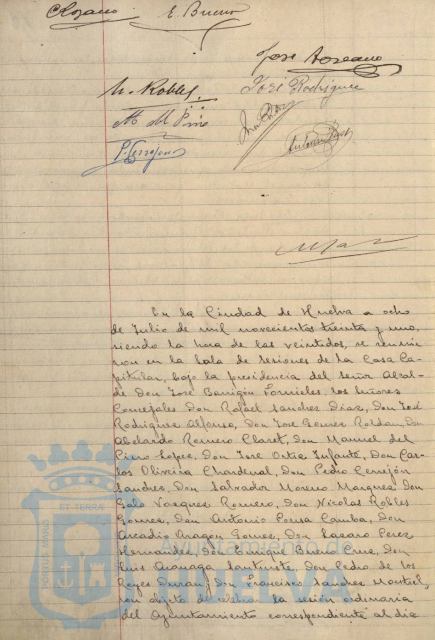 C Lozano E. Bueno
José Soreano
N. Robles José Rodriguez
M del Pino
P. Cerrejon Antonio
En la Ciudad de Huelva a ocho
de Julio de mil novecientos treinta y uno,
siendo la hora de las veintidos, se reunie
ron en la Sala de Sesiones de la Casa Ca-
pitular, bajo la presidencia del Señor Alcal-
de Don José Barrigón Fornieles, los Señores
Concejales Don Rafael Sanchez Diaz, Don José
Rodriguez Alfonso, Don José Gomez Roldan, Don
Abelardo Romero Claret, Don Manuel del
Pino Lopez, Don José Ortiz Infante, Don Car-
los Oliveira Chardenal, Don Pedro Cerrejón
Sanchez, Don Salvador Moreno Marquez, Don
Galo Vazquez Romero, Don Nicolas Robles
Gomez, Don Antonio Pousa Camba, Don
Arcadio Aragon Gomez, Don Lazaro Perez
Hernandez, Don Enrique Bueno Cruz, Don
Luis Don Pedro de los
Reyes Duran, Don Francisco Sanchez
con objeto de celebrar la sesión ordinaria
del Ayuntamiento correspondiente al dia
PORTUS MARIS
ET TERRAE
Ayuntamiento de
HUELVA